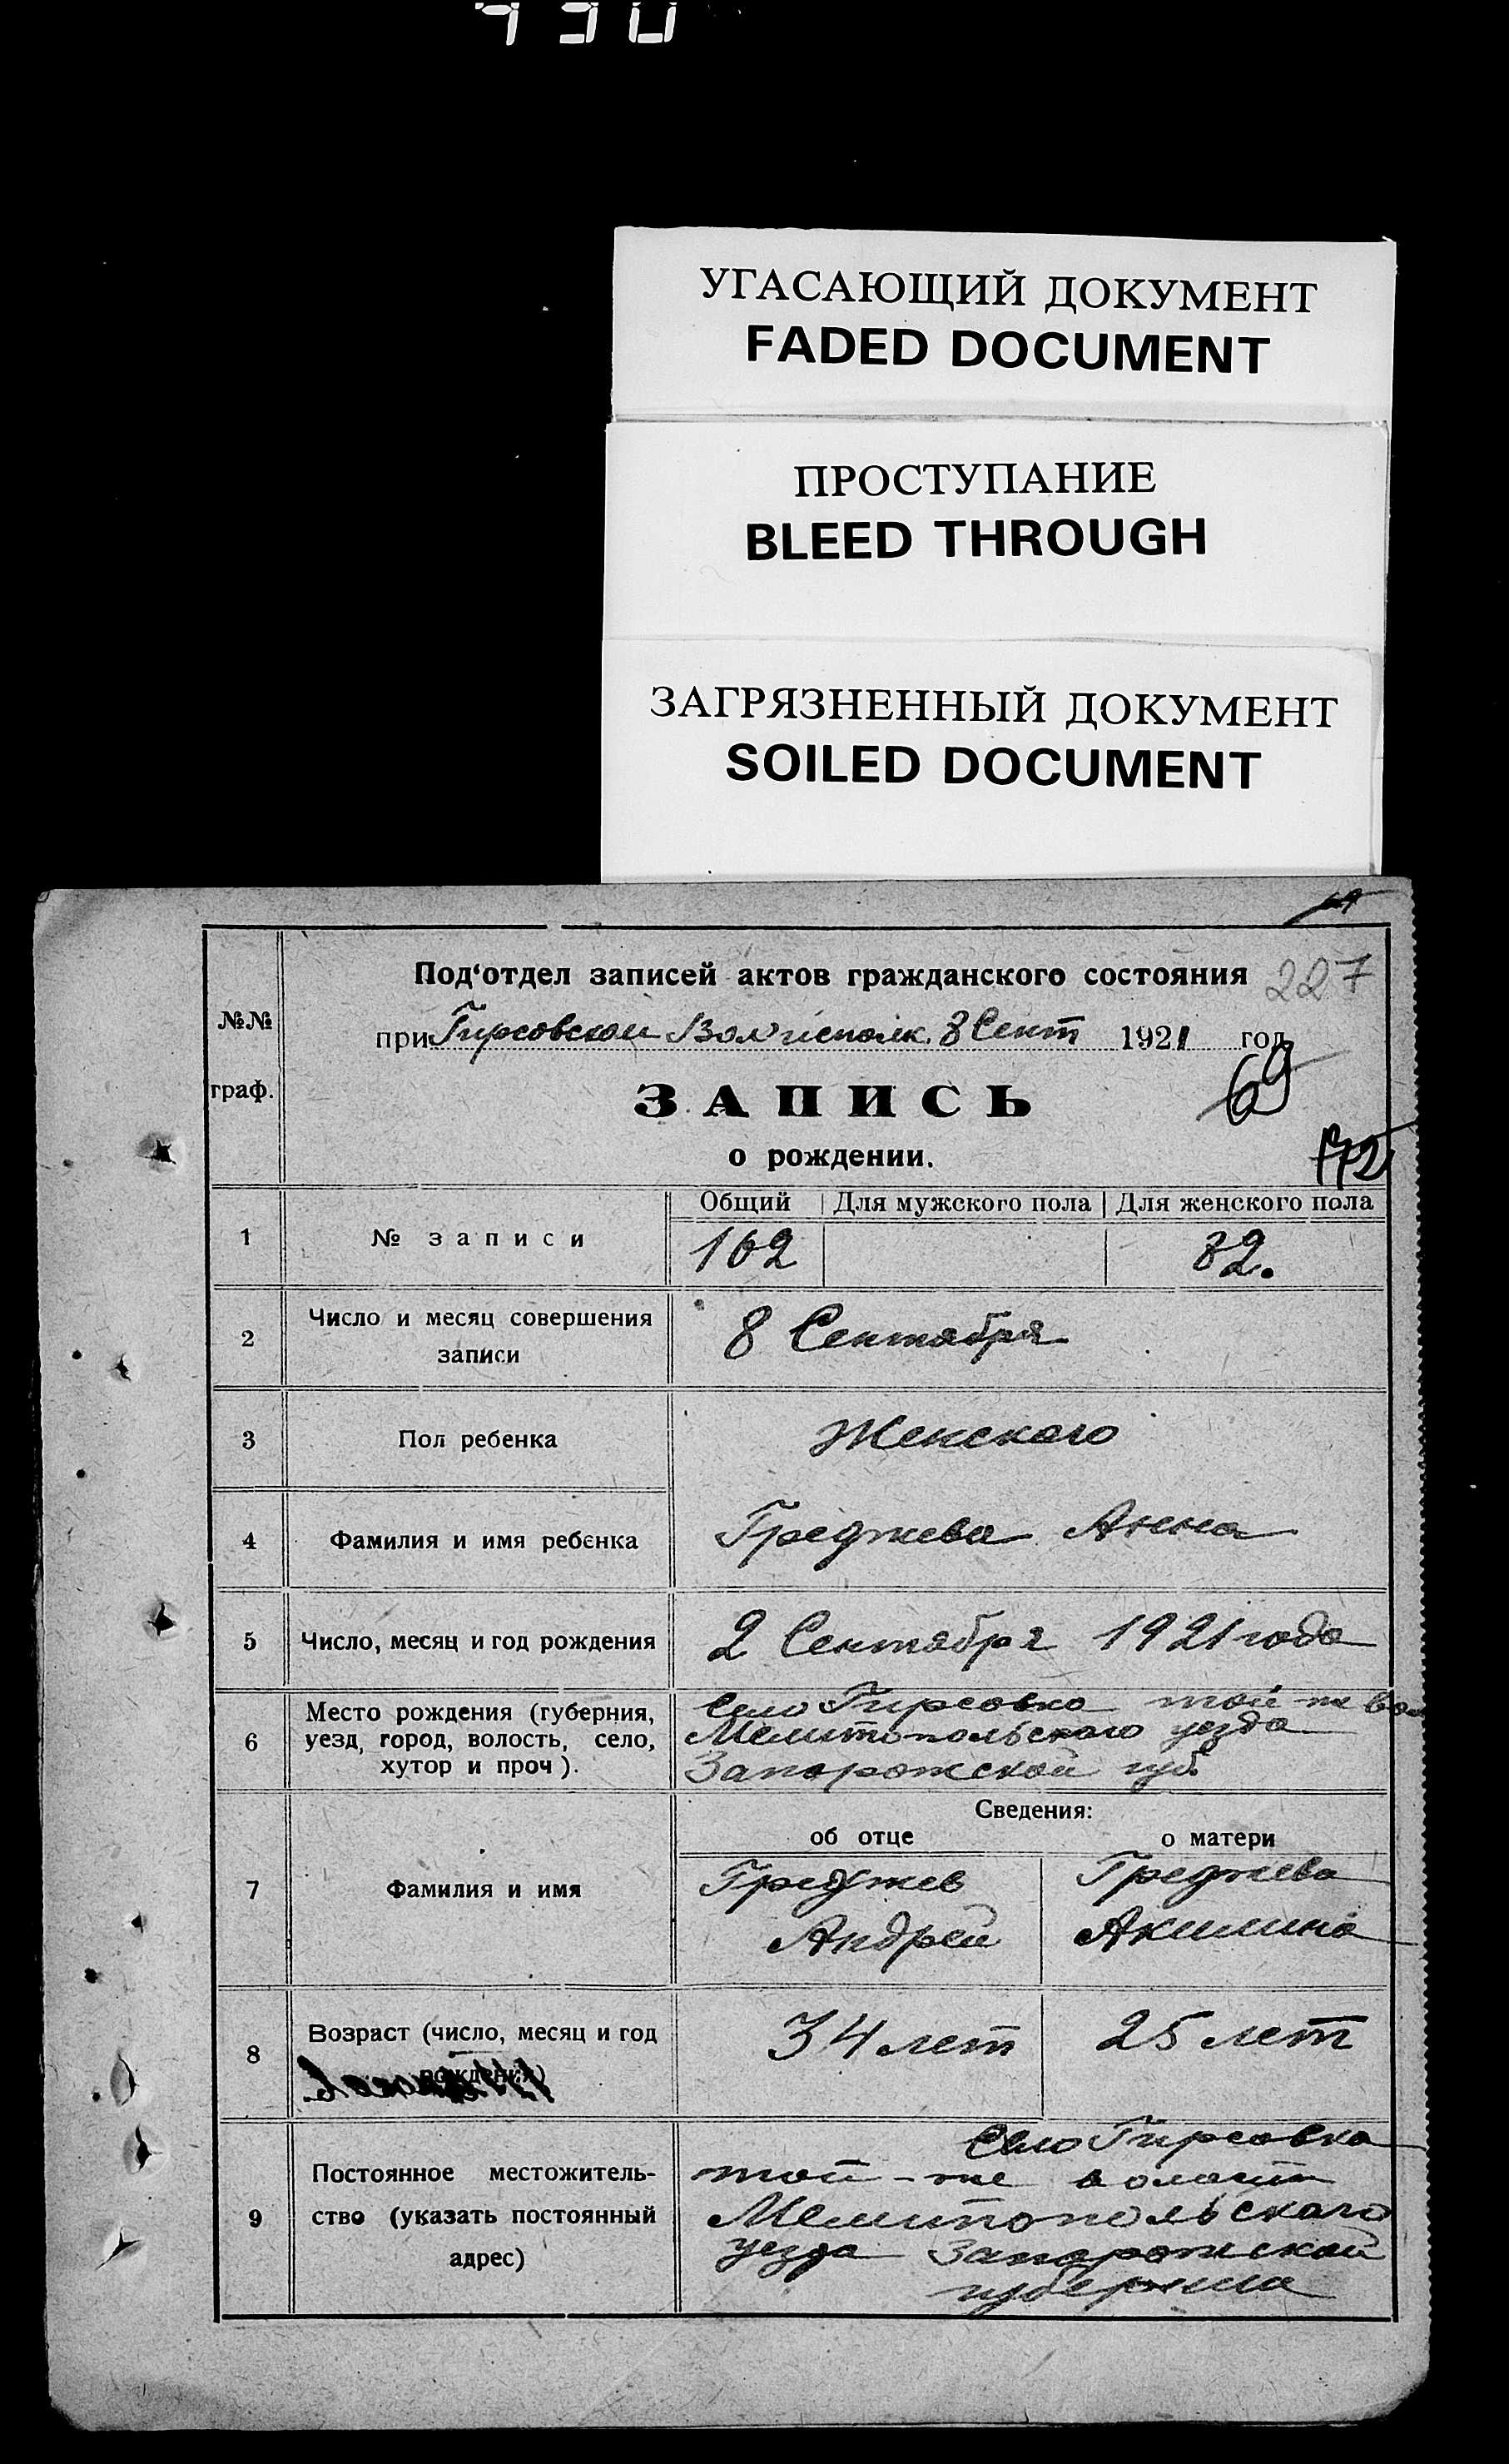 930
УГАСАЮЩИЙ ДОКУМЕНТ
FADED DOCUMENT
ПРОСТУПАНИЕ
BLEED THROUGH
ЗАГРЯЗНЕННЫЙ ДОКУМЕНТ
SOILED DOCUMENT
Под'отдел записей актов гражданского состояния 227
№№
при Гирсовском Волисполк. 8 Сент 1921 год
69
граф.
ЗАПИСЬ
172
о рождении.
Общий Для мужского пола Для женского пола
1 № записи 162 82.
2 Число и месяц совершения
записи
8 Сентября
3 Пол ребенка Женского
4 Фамилия и имя ребенка Греджева Анна
5 Число, месяц и год рождения 2 Сентября 1921 года
6 Место рождения (губерния,
уезд, город, волость, село,
хутор и проч).
Село Гирсовка той-же вол
Мелитопольского уезда
Запорожской губ.
Сведения:
об отце о матери
7 Фамилия и имя
Греджев
Андрей
Греджева
Акилина
8 Возраст (число, месяц и год
рождения)
34 лет 25 лет
9 Постоянное местожитель-
ство (указать постоянный
адрес)
Село Гирсовка
той-же волости
Мелитопольского
уезда Запорожской
губернии